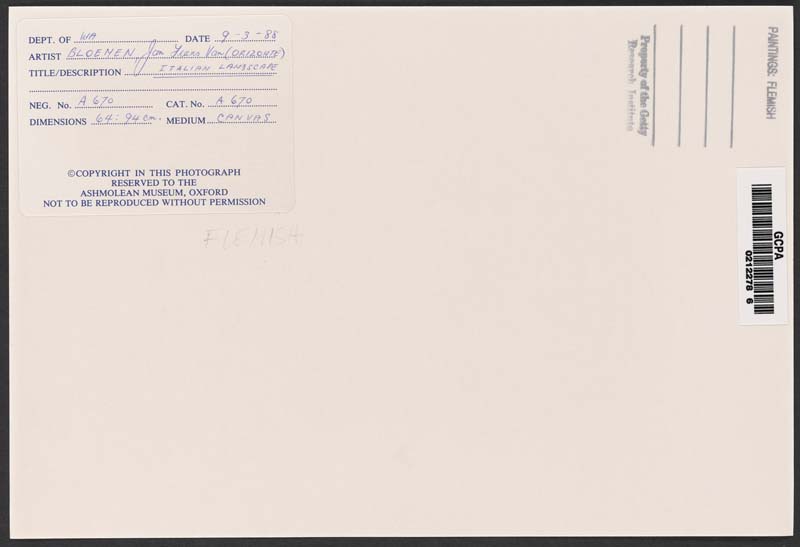 DEPT. OF WA DATE 9-3-88
ARTIST BLOEMEN, Jan Frans Van (ORIZONTE)
TITLE/DESCRIPTION ITALIAN LANDSCAPE
NEG. No. A 670 CAT. No. A 670
DIMENSIONS 64: 94 cm. MEDIUM CANVAS
©COPYRIGHT IN THIS PHOTOGRAPH
RESERVED TO THE
ASHMOLEAN MUSEUM, OXFORD
NOT TO BE REPRODUCED WITHOUT PERMISSION
FLEMISH
Property of the Getty
Research Institute
PAINTINGS: FLEMISH
GCPA
0212278 6